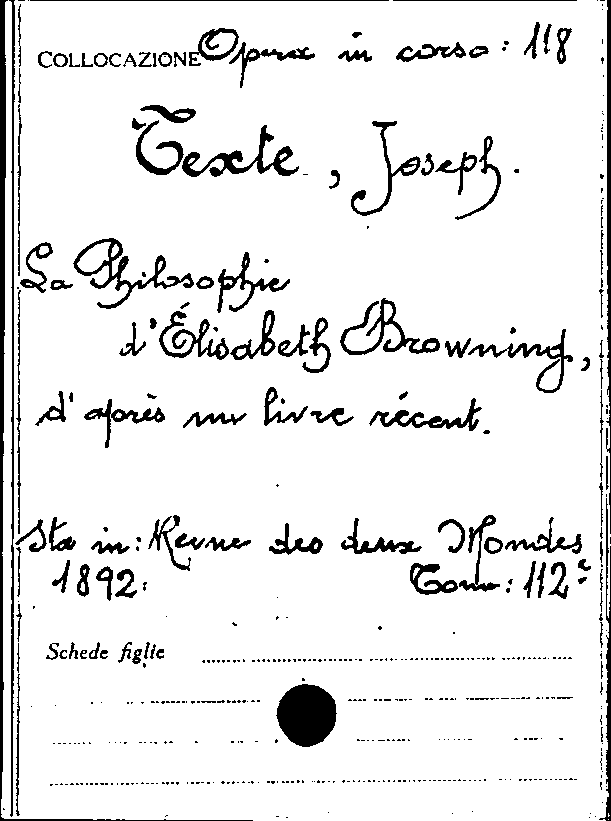 COLLOCAZIONE Opera in corso: 118
Texte, Joseph.
La Philosophie
d'Élisabeth Browning,
d'après un livre récent.
Sta in: Revue des deux Mondes
1892. Tome: 112e
Schede figlie